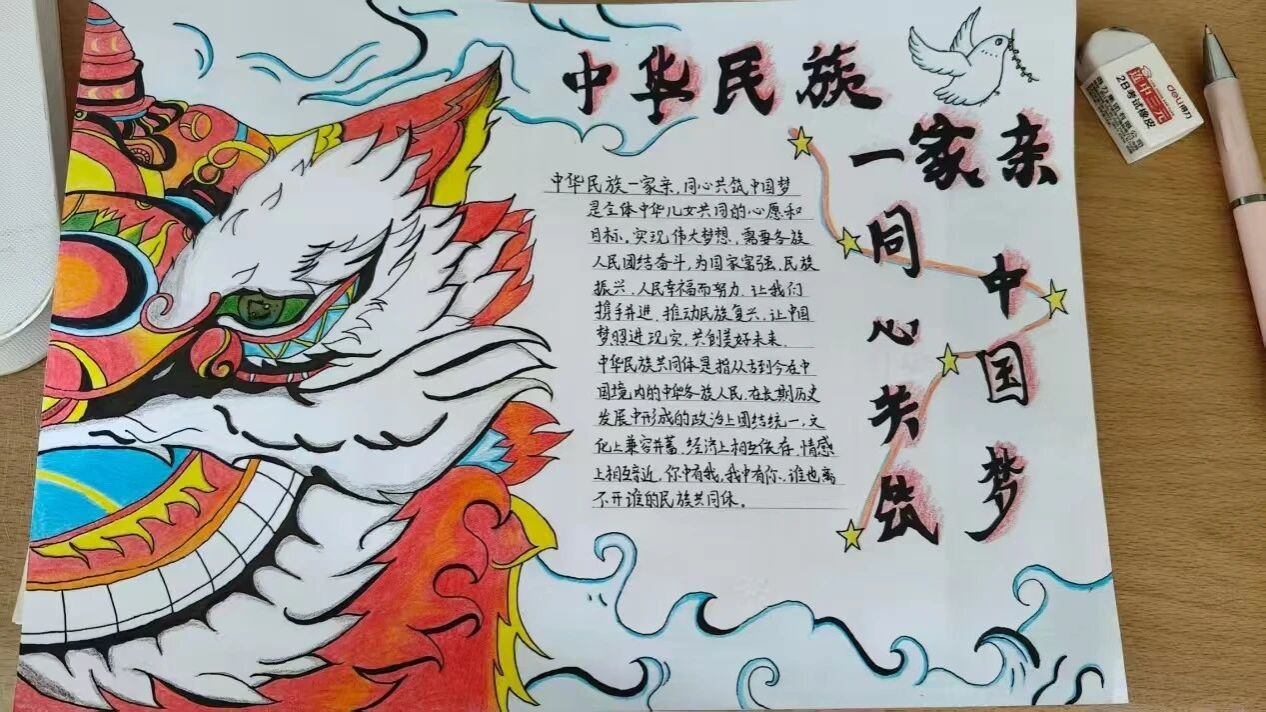 中华民族
一家亲
同心共筑
中国梦
中华民族一家亲,同心共筑中国梦
是全体中华儿女共同的心愿和
目标。实现伟大梦想,需要各族
人民团结奋斗,为国家富强,民族
振兴,人民幸福而努力,让我们
携手并进,推动民族复兴,让中国
梦照进现实,共创美好未来.
中华民族共同体是指从古到今在中
国境内的中华各族人民,在长期历史
发展中形成的政治上团结统一,文
化上兼容并蓄,经济上相互依存,情感
上相互亲近,你中有我,我中有你,谁也离
不开谁的民族共同体。
deli得力
2B考试橡皮